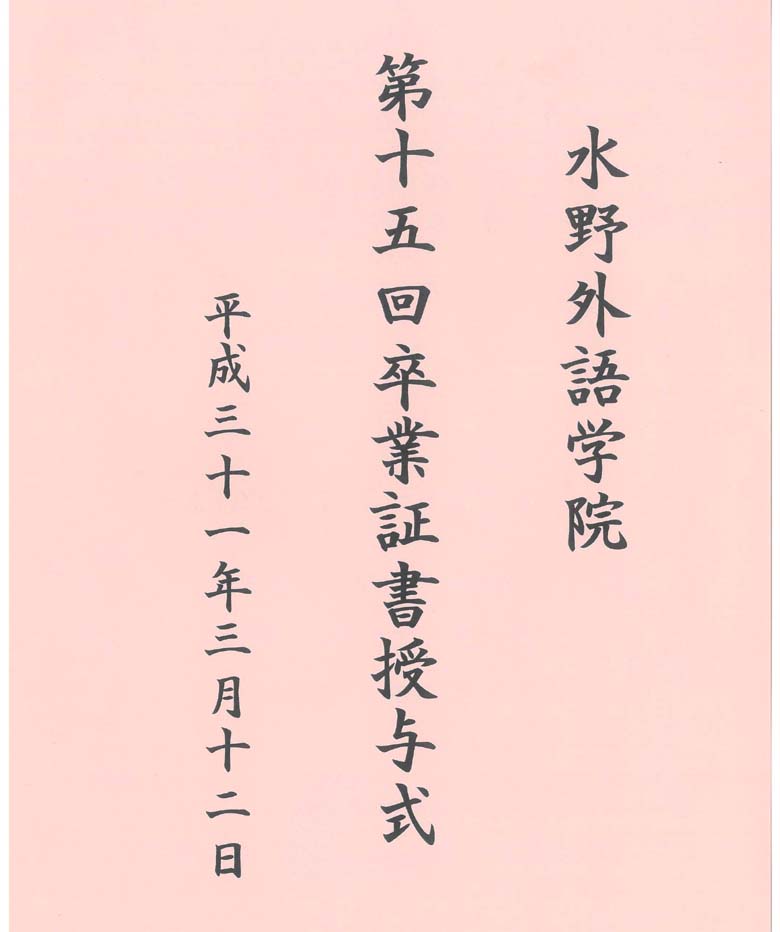 水野外語学院
第十五回卒業証書授与式
平成三十一年三月十二日